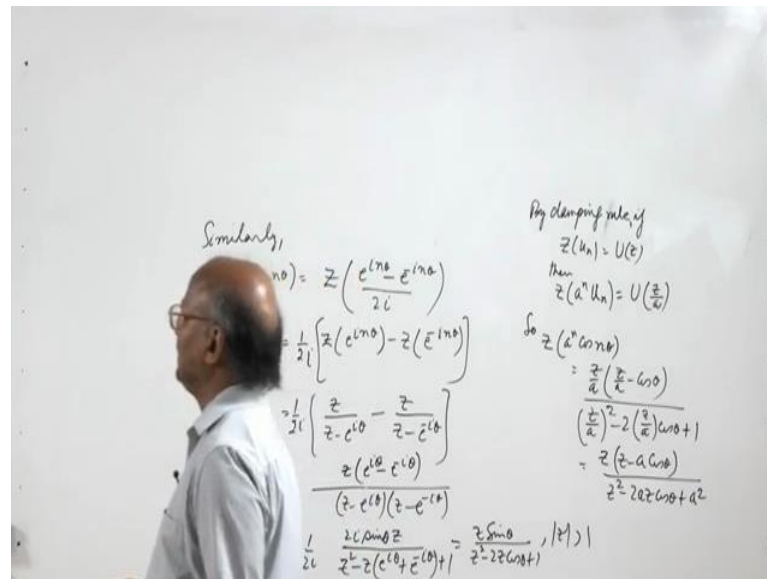 Similarly,
nθ) = Z((e^{inθ} - e^{-inθ})/2i)
= 1/2i [Z(e^{inθ}) - Z(e^{-inθ})]
= 1/2i [z/(z-e^{iθ}) - z/(z-e^{-iθ})]
z(e^{iθ} - e^{-iθ})/((z-e^{iθ})(z-e^{-iθ}))
1/2i 2i sinθ z/(z²-z(e^{iθ}+e^{-iθ})+1) = z Sinθ/(z²-2z cosθ+1), |z|>1
By damping rule, if
Z(u_n) = U(z)
then
Z(a^n u_n) = U(z/a)
So Z(a^n cos nθ)
= z/a (z/a - cosθ)/((z/a)² - 2(z/a) cosθ + 1)
= z(z - a cosθ)/(z² - 2az cosθ + a²)